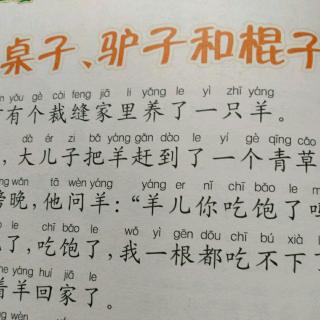 桌子、驴子和棍子
n yǒu gè cái feng jiā li yǎng le yì zhī yáng
有个裁缝家里养了一只羊。
dà ér zi bǎ yáng gǎn dào le yí gè qīng cǎo
,大儿子把羊赶到了一个青草
wǎn tā wèn yáng yáng er nǐ chī bǎo le
傍晚,他问羊:“羊儿你吃饱了吗
le chī bǎo le wǒ yì gēn dōu chī bú xià
了,吃饱了,我一根都吃不下了
he yáng huí jiā le
着羊回家了。